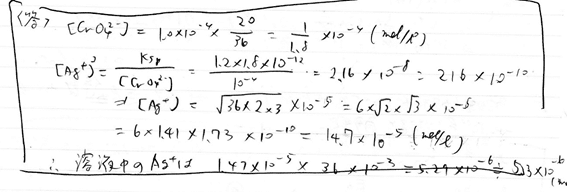 〈答〉 [CrO₄²⁻] = 1.0×10⁻⁴ × 20/36 = 1/1.8 ×10⁻⁴ (mol/l)
[Ag⁺]² = Ksp/[CrO₄²⁻] = 1.2×1.8×10⁻¹²/10⁻⁴ = 2.16×10⁻⁸ = 216×10⁻¹⁰
⇒ [Ag⁺] = √36×2×3 ×10⁻⁵ = 6×√2×√3 ×10⁻⁵
= 6×1.41×1.73 ×10⁻¹⁰ = 14.7×10⁻⁵ (mol/l)
∴ 溶液中のAg⁺は 1.47×10⁻⁵ × 36 ×10⁻³ = 5.29×10⁻⁶ ≒ 5.3×10⁻⁶